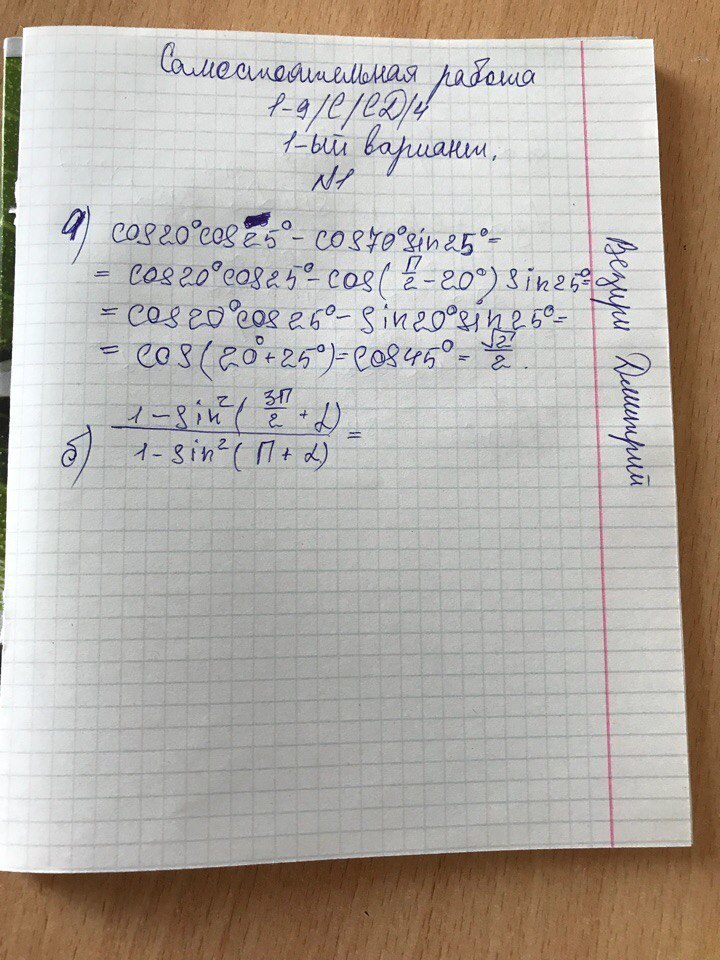 Самостоятельная работа
1-9/С/СД/4
1-ый вариант.
N1
а) cos20°cos25° - cos70°sin25° =
= cos20°cos25° - cos(π/2 - 20°) sin25° =
= cos20°cos25° - sin20°sin25° =
= cos(20° + 25°) = cos45° = √2/2.
б) (1 - sin²(3π/2 + α))/(1 - sin²(π + α)) =
Дмитрий